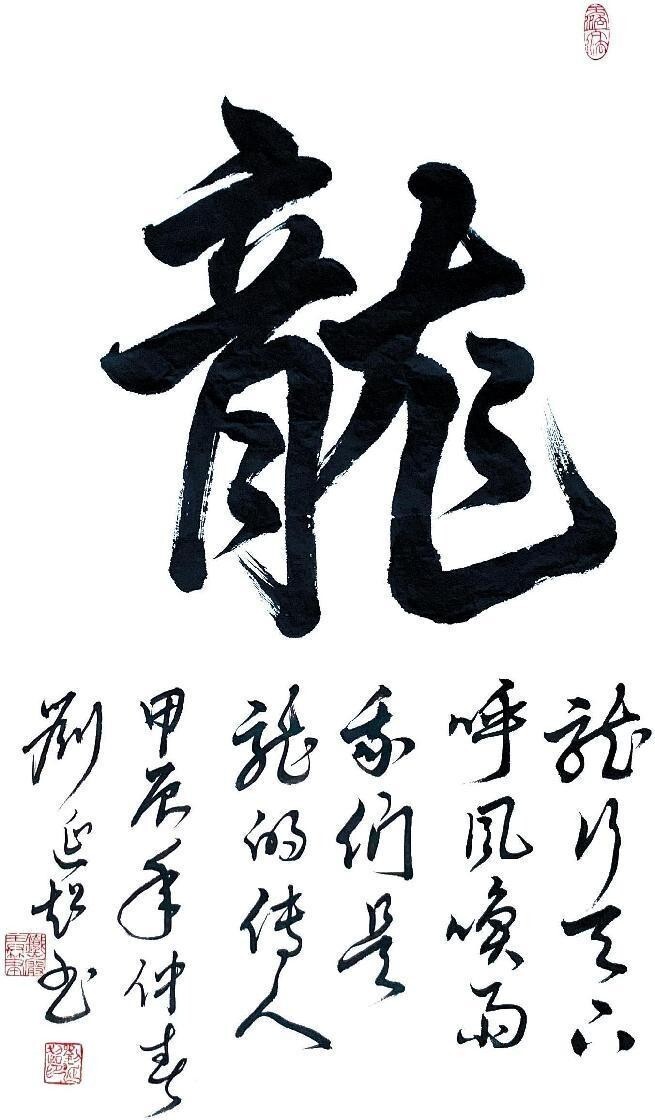 龍
龍行天下
呼風喚雨
我们是
龍的傳人
甲辰年仲春
劉延超书